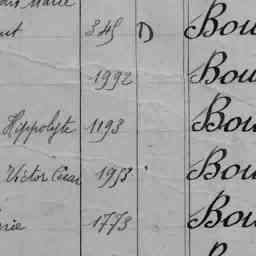 Marie
345 D Bou
1992 Bou
Hippolyte 1193 Bou
Victor César 1953 Bou
1773 Bou